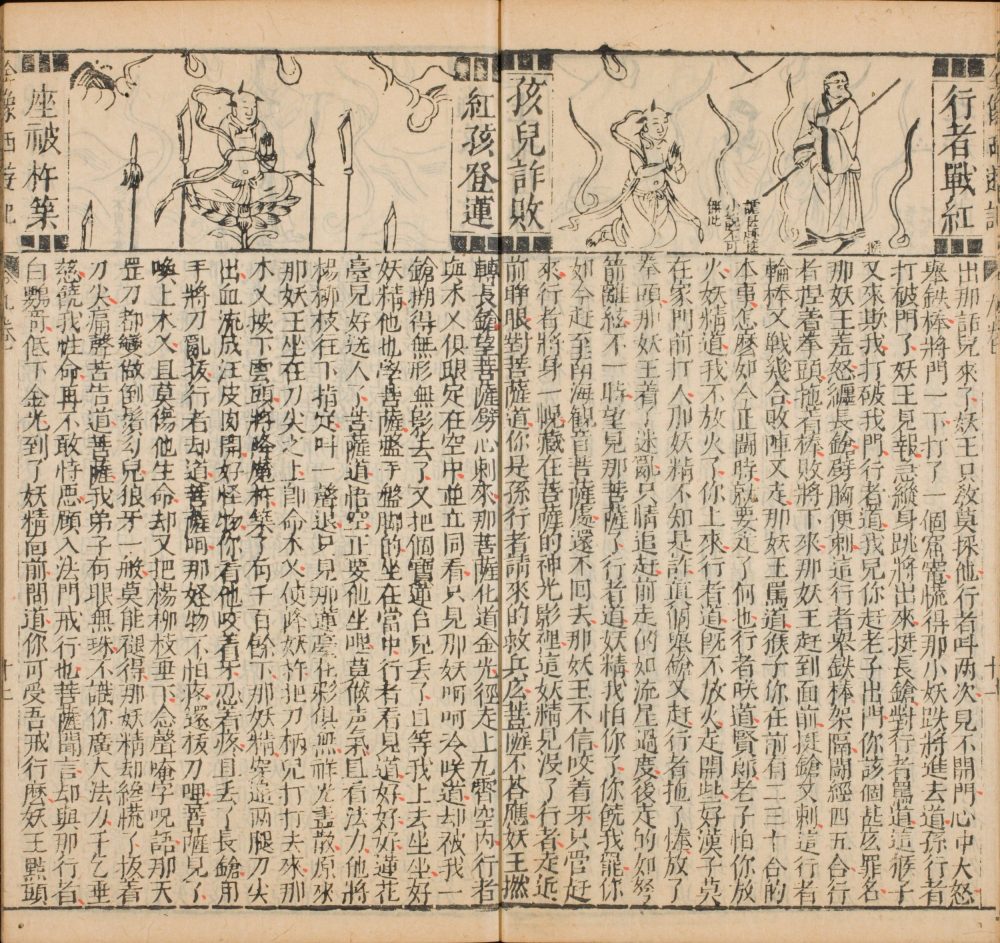 行者戰紅
孩兒詐敗
出那話兒來了妖王只教莫採他行者呌兩次見不開門心中大怒
舉鉄棒將門一下打了一個窟窿慌得那小妖跌將進去道孫行者
打破門了妖王見報急縱身跳將出來挺長鎗對行者罵道這猴子
又來欺我打破我門行者道我兒你赶老子出門你該個甚庅罪名
那妖王羞怒綽長鎗劈胸便刺這行者舉鉄棒架隔鬪經四五合行
者捏着拳頭拖着棒敗將下來那妖王赶到面前挺鎗又刺這行者
輪棒又戰幾合敗陣又走那妖王罵道猴子你在前有二三十合的
本事怎麽如今正鬪時就要走了何也行者咲道賢郎老子怕你放
火妖精道我不放火了你上來行者道既不放火走開些好漢子莫
在家門前打人那妖精不知是詐真個舉鎗又赶行者拖了棒放了
拳頭那妖王着了迷亂只情追赶前走的如流星過度後走的如弩
箭離絃不一時望見那菩薩了行者道妖精我怕你了你饒我罷你
如今赶至南海觀音菩薩處還不回去那妖王不信咬着牙只管赶
來行者將身一幌藏在菩薩的神光影裡這妖精見沒了行者走近
前睜眼對菩薩道你是孫行者請來的救兵庅菩薩不荅應妖王撚
紅孩登蓮
座被杵築
轉長鎗望菩薩劈心刺來那菩薩化道金光徑走上九霄空内行者
與木乂俱跟定在空中並立同看只見那妖呵呵冷咲道却被我一
鎗搠得無形無影去了又把個寶蓮台兒丟了且等我上去坐坐好
妖精他也學菩薩盤手盤脚的坐在當中行者看見道好好好蓮花
臺兒好送人了菩薩道悟空正要他坐哩莫做声氣且看法力他將
楊柳枝往下指定呌一聲退只見那蓮臺化彩俱無祥光盡散原來
那妖王坐在刀尖之上即命木乂使降妖杵把刀柄兒打打去來那
木乂按下雲頭將降魔杵築了有千百餘下那妖精穿這兩腿刀尖
出血流成汪皮肉開好怪物你看他咬着牙忍着疼且丢了長鎗用
手將刀亂拔行者却道菩薩呵那怪物不怕疼還拔刀哩菩薩見了
喚上木乂且莫傷他生命却又把楊柳枝垂下念聲唵字呪語那天
罡刀都變做倒鬚勾兒狼牙一般莫能褪得那妖精却纔慌了扳着
刀尖痛聲苦告道菩薩我弟子有眼無珠不識你廣大法力千乞垂
慈饒我性命再不敢恃惡願入法門戒行也菩薩聞言却與那行者
白鸚奇低下金光到了妖精面前問道你可受吾戒行麽妖王點頭